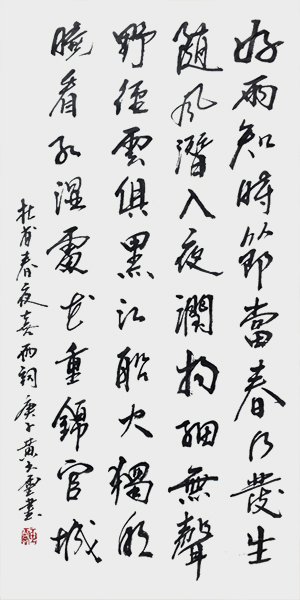 好雨知時節當春乃發生
随風潛入夜潤物細無聲
野徑雲俱黑江船火獨明
曉看紅濕處花重錦官城
杜甫春夜喜雨詞庚子黄大雲書